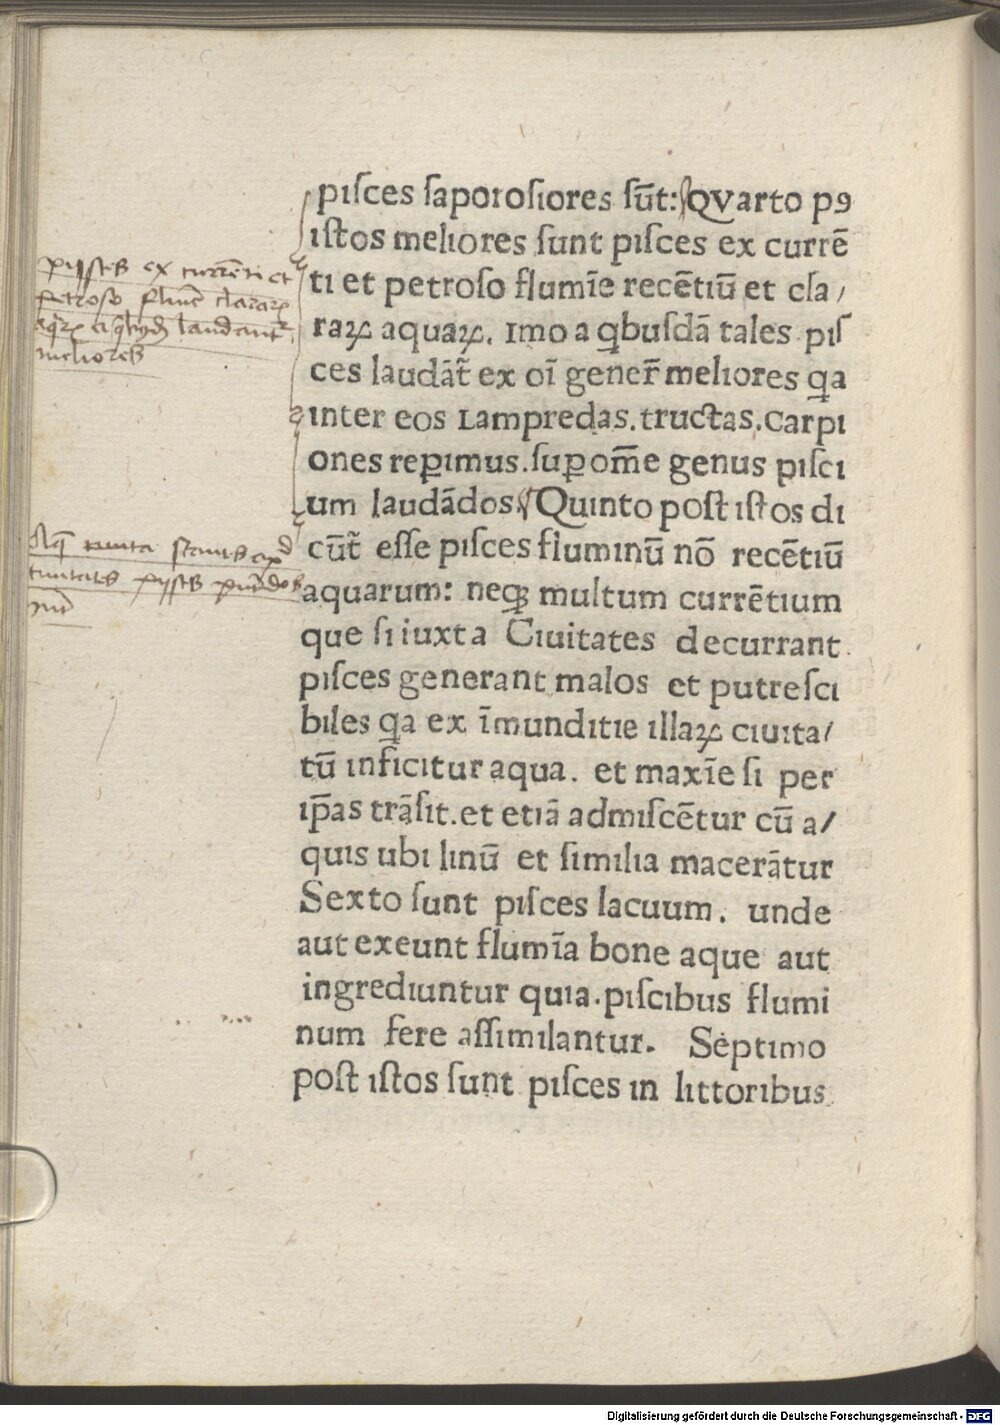 piſces ſaporoſiores ſūt: QVarto pꝯ
iſtos meliores ſunt piſces ex currē
ti et petroſo flumīe recētiū et cla/
raꝝ aquaꝝ. imo a qbuſdā tales piſ
ces laudāt̄ ex oī gener̄ meliores qa
inter eos Lampredas. tructas. Carpi
ones reꝑimus. ſuꝑ om̄e genus piſci
um laudādos. Quinto poſt iſtos di
cūt̄ eſſe piſces fluminū nō recētiū
aquarum: neqꝫ multum currētium
que ſi iuxta Ciuitates decurrant
piſces generant malos et putreſci
biles qa ex īmunditie illaꝝ ciuita/
tū inficitur aqua. et maxīe ſi per
ip̄as trāſit. et etiā admiſcētur cū a/
quis ubi linū et ſimilia macerātur
Sexto ſunt piſces lacuum. unde
aut exeunt flumīa bone aque aut
ingrediuntur quia. piſcibus flumi
num fere aſſimilantur. Septimo
poſt iſtos ſunt piſces in littoribus
ex currēti et
petroso
meliores
Digitalisierung gefördert durch die Deutsche Forschungsgemeinschaft - DFG